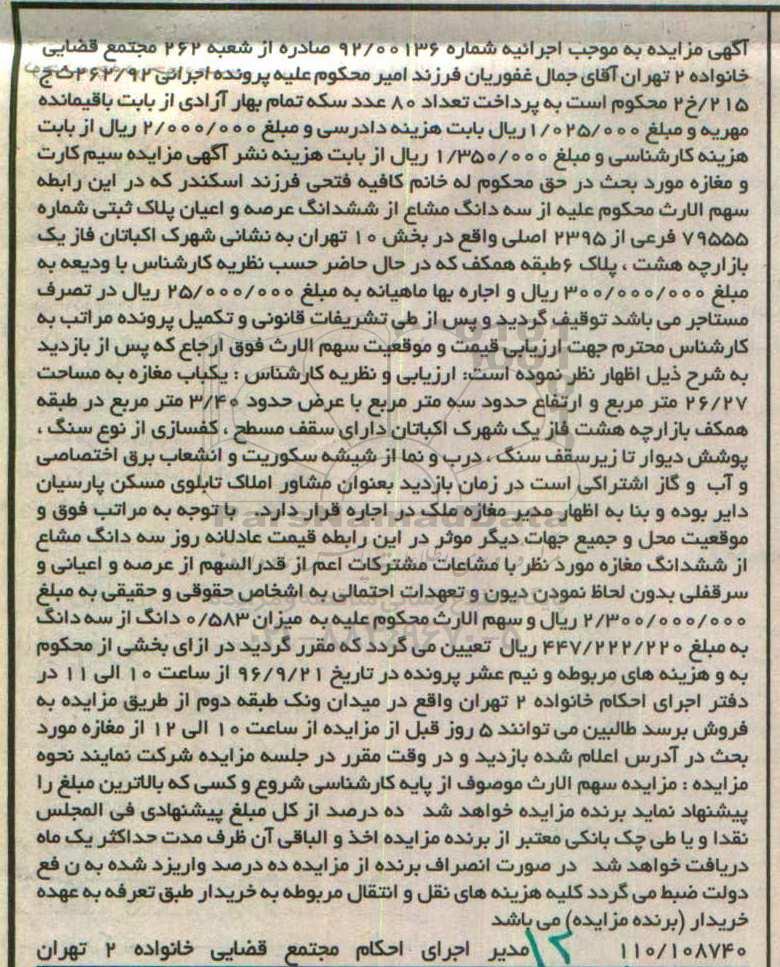 آگهی مزایده به موجب اجرائیه شماره ۹۲/۰۰۱۳۶ صادره از شعبه ۲۶۲ مجتمع قضایی
خانواده ۲ تهران آقای جمال غفوریان فرزند امیر محکوم علیه پرونده اجرائی ۲۶۲/۹۲ ث ج
۲۱۵/خ۲ محکوم است به پرداخت تعداد ۸۰ عدد سکه تمام بهار آزادی از بابت باقیمانده
مهریه و مبلغ ۱/۰۲۵/۰۰۰ ریال بابت هزینه دادرسی و مبلغ ۲/۰۰۰/۰۰۰ ریال از بابت
هزینه کارشناسی و مبلغ ۱/۳۵۰/۰۰۰ ریال از بابت هزینه نشر آگهی مزایده سیم کارت
و مغازه مورد بحث در حق محکوم له خانم کافیه فتحی فرزند اسکندر که در این رابطه
سهم الارث محکوم علیه از سه دانگ مشاع از ششدانگ عرصه و اعیان پلاک ثبتی شماره
۷۹۵۵۵ فرعی از ۲۳۹۵ اصلی واقع در بخش ۱۰ تهران به نشانی شهرک اکباتان فاز یک
بازارچه هشت ، پلاک ۶ طبقه همکف که در حال حاضر حسب نظریه کارشناس با ودیعه به
مبلغ ۳۰۰/۰۰۰/۰۰۰ ریال و اجاره بها ماهیانه به مبلغ ۲۵/۰۰۰/۰۰۰ ریال در تصرف
مستاجر می باشد توقیف گردید و پس از طی تشریفات قانونی و تکمیل پرونده مراتب به
کارشناس محترم جهت ارزیابی قیمت و موقعیت سهم الارث فوق ارجاع که پس از بازدید
به شرح ذیل اظهار نظر نموده است: ارزیابی و نظریه کارشناس : یکباب مغازه به مساحت
۲۶/۲۷ متر مربع و ارتفاع حدود سه متر مربع با عرض حدود ۳/۴۰ متر مربع در طبقه
همکف بازارچه هشت فاز یک شهرک اکباتان دارای سقف مسطح ، کفسازی از نوع سنگ ،
پوشش دیوار تا زیرسقف سنگ ، درب و نما از شیشه سکوریت و انشعاب برق اختصاصی
و آب و گاز اشتراکی است در زمان بازدید بعنوان مشاور املاک تابلوی مسکن پارسیان
دایر بوده و بنا به اظهار مدیر مغازه ملک در اجاره قرار دارد. با توجه به مراتب فوق و
موقعیت محل و جمیع جهات دیگر موثر در این رابطه قیمت عادلانه روز سه دانگ مشاع
از ششدانگ مغازه مورد نظر با مشاعات مشترکات اعم از قدرالسهم از عرصه و اعیانی و
سرقفلی بدون لحاظ نمودن دیون و تعهدات احتمالی به اشخاص حقوقی و حقیقی به مبلغ
۲/۳۰۰/۰۰۰/۰۰۰ ریال و سهم الارث محکوم علیه به میزان ۰/۵۸۳ دانگ از سه دانگ
به مبلغ ۴۴۷/۲۲۲/۲۲۰ ریال تعیین می گردد که مقرر گردید در ازای بخشی از محکوم
به و هزینه های مربوطه و نیم عشر پرونده در تاریخ ۹۶/۹/۲۱ از ساعت ۱۰ الی ۱۱ در
دفتر اجرای احکام خانواده ۲ تهران واقع در میدان ونک طبقه دوم از طریق مزایده به
فروش برسد طالبین می توانند ۵ روز قبل از مزایده از ساعت ۱۰ الی ۱۲ از مغازه مورد
بحث در آدرس اعلام شده بازدید و در وقت مقرر در جلسه مزایده شرکت نمایند نحوه
مزایده : مزایده سهم الارث موصوف از پایه کارشناسی شروع و کسی که بالاترین مبلغ را
پیشنهاد نماید برنده مزایده خواهد شد ده درصد از کل مبلغ پیشنهادی فی المجلس
نقدا و یا طی چک بانکی معتبر از برنده مزایده اخذ و الباقی آن ظرف مدت حداکثر یک ماه
دریافت خواهد شد در صورت انصراف برنده از مزایده ده درصد واریزد شده به ن فع
دولت ضبط می گردد کلیه هزینه های نقل و انتقال مربوطه به خریدار طبق تعرفه به عهده
خریدار (برنده مزایده) می باشد
۱۱۰/۱۰۸۷۴۰ مدیر اجرای احکام مجتمع قضایی خانواده ۲ تهران
۱۲
ParsNamadData